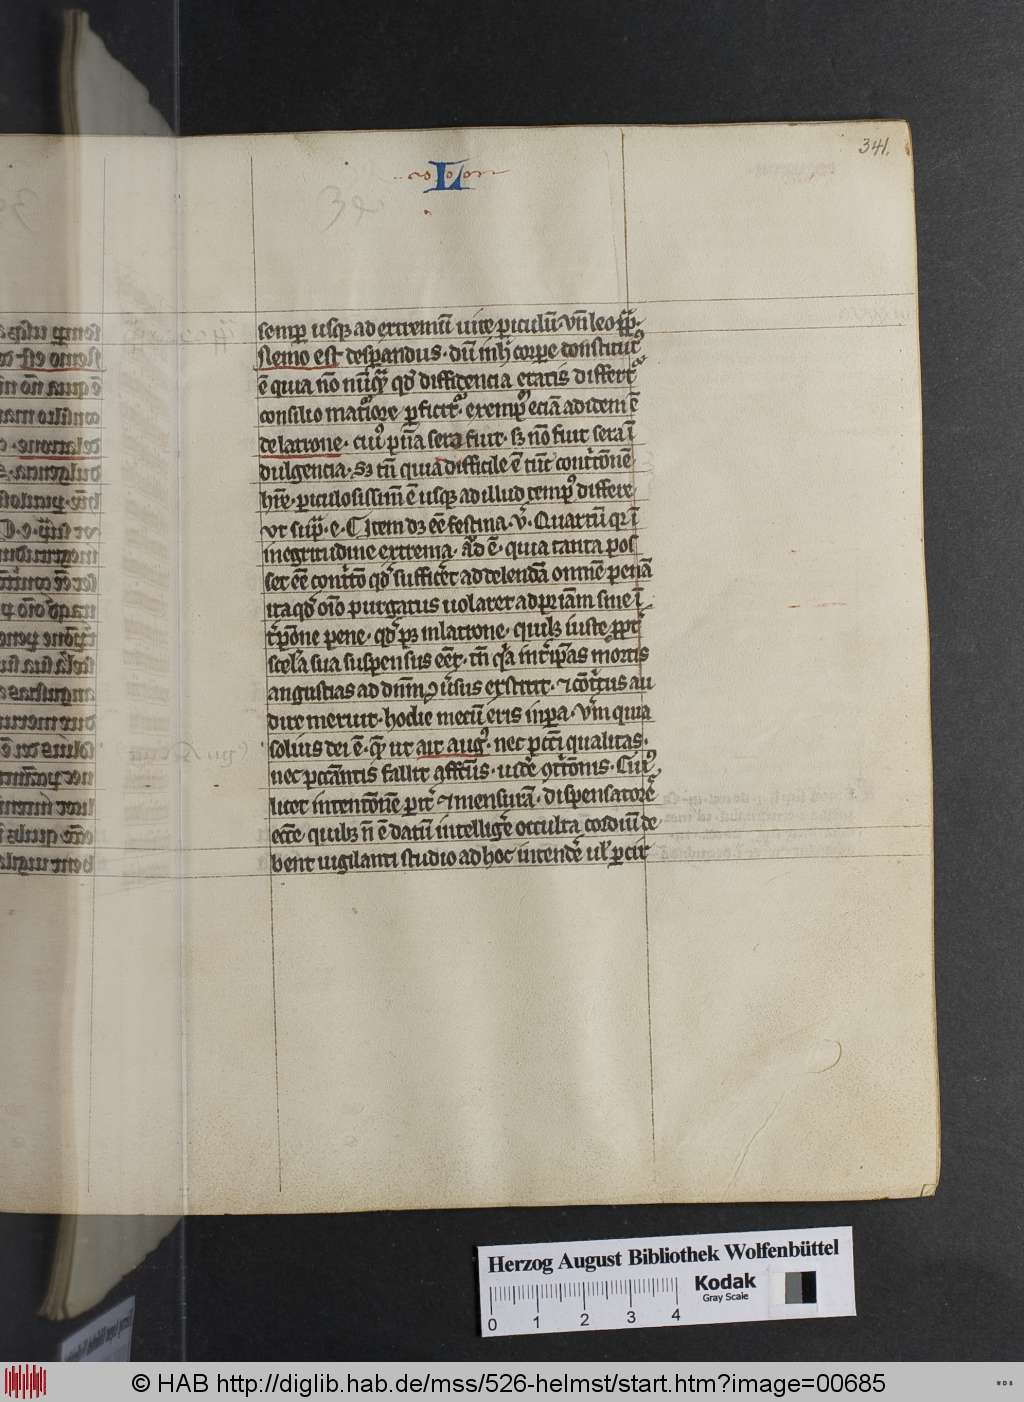 341.
L
semp usq; ad extremū uite piculū. vn̄ leo pp̄.
Nemo est despandus. dū in h̓ corpe constituit᷑
ē quia nō nūq̄ qd̓ diffidencia etatis differt᷑
consilio mat᷑iore pficit᷑. exempꝰ eciā ad idem ē
de latrone. cuiꝰ pn̄ia sera fuit. sꝫ nō fuit sera ī
dulgencia. Sꝫ tn̄ quia difficile ē tūc cont᷑ōnē
hr̄e. piculosissim̄ ē usq; ad illud tempꝰ differe
vt sup̄. e. Item dꝫ eē festina. v̓. Quartū qr̓ ī
in egritudine extrema. ad ē. quia tanta pos
set eē cont᷑ō qd̓ sufficeret ad delendā omnē penā
ita qd̓ oīo purgatus uolaret ad pr̓iam sine ī
t᷑pōne pene. qd̓ pꝫ in latrone. quilꝫ iuste ppt᷑
scela sua suspensus eēt. tn̄ q̓a int᷑ ip̄as mortis
angustias ad dn̄m ꝯūsus extitit. ⁊ cōt᷑itus au
dire meruit. hodie mecū eris in pa. Vm̄ quia
solius dei ē. q̄ ut ait augꝰ. nec pcc̄i qualitas.
nec pccantis fallit affc̄us. uide ꝯt᷑ōnis. Cuiꝰ
licet intencōnē pit᷑ ⁊ mensurā. dispensatorē
ecc̄e quilꝫ n̄ ē datū intellige̓ occulta cordiū de
bent uigilanti studio ad hoc intende̓ ul̓ pcit
Herzog August Bibliothek Wolfenbüttel
0 1 2 3 4
Kodak
Gray Scale
© HAB http://diglib.hab.de/mss/526-helmst/start.htm?image=00685